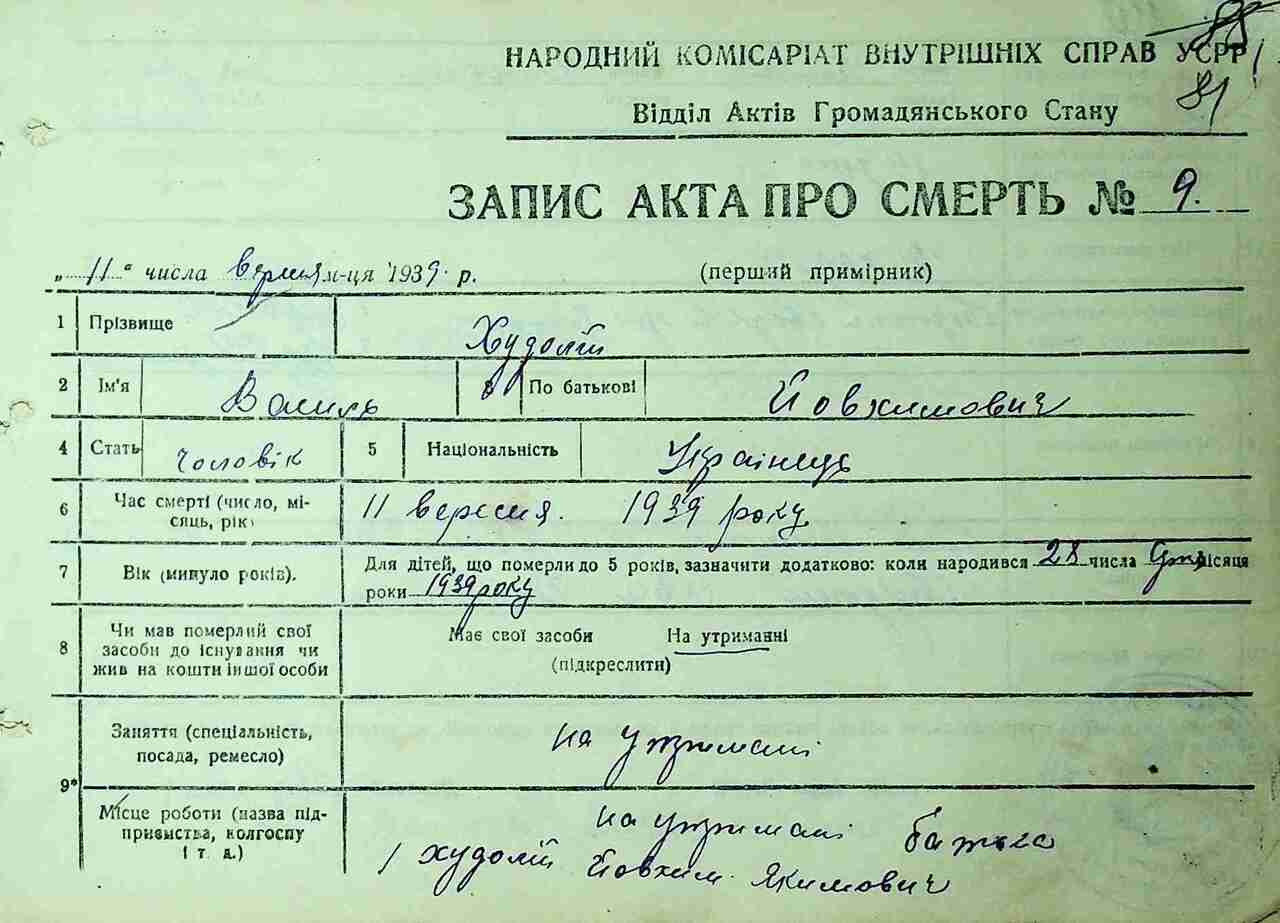 88
НАРОДНИЙ КОМІСАРІАТ ВНУТРІШНІХ СПРАВ УСРР
81
Відділ Актів Громадянського Стану
ЗАПИС АКТА ПРО СМЕРТЬ № 9.
„11“ числа вересня м-ця 1939 р. (перший примірник)
1 Прізвище Худолій
2 Ім'я Василь 3 По батькові Йовхимович
4 Стать чоловік 5 Національність Українець
6 Час смерті (число, мі-
сяць, рік) 11 вересня. 1939 року
7 Вік (минуло років). Для дітей, що померли до 5 років, зазначити додатково: коли народився 28 числа місяця
роки 1939 року
8 Чи мав померлий свої
засоби до існування чи
жив на кошти іншої особи
Має свої засоби На утриманні
(підкреслити)
9* Заняття (спеціальність,
посада, ремесло) на утримані
Місце роботи (назва під-
приємства, колгоспу
і т. д.)
на утримані батька
Худолій Йовхим Якимович